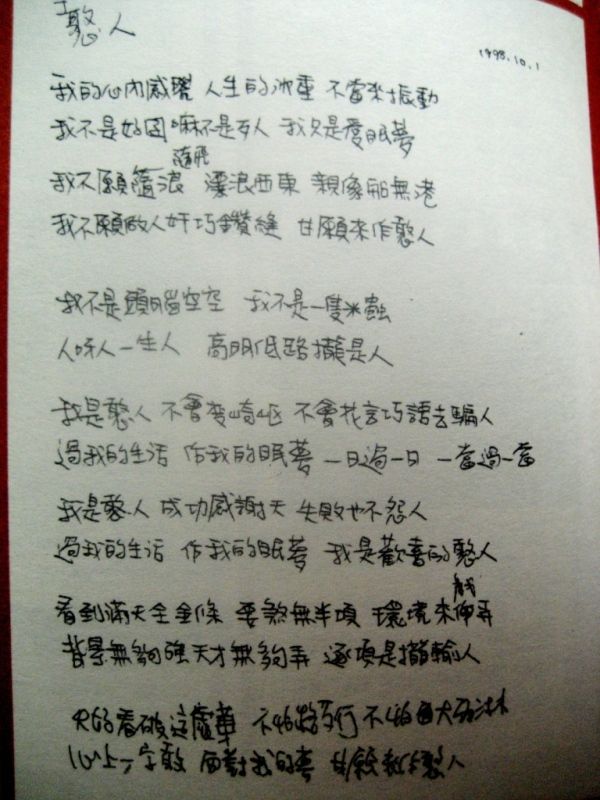 憨人
1998.10.1
我的心內感覺 人生的沈重 不當來振動
我不是好囝嘛不是歹人 我只是愛眠夢
隨飛
我不願隨浪 漂浪西東 親像船無港
我不願做人奸巧鑽縫 甘願來作憨人
我不是頭腦空空 我不是一隻米蟲
人呀人一生人 高明低路攏是人
我是憨人 不會變崎嶇 不會花言巧語去騙人
過我的生活 作我的眠夢 一日過一日 一當過一當
我是憨人 成功感謝天 失敗也不怨人
過我的生活 作我的眠夢 我是歡喜的憨人
看到滿天全金條 要煞無半項 環境來
弄
背景無夠強天才無夠弄 逐項是攏輸人
只好看破這虛華 不怕 不怕
心上一字敢 面對我的夢 甘願來作憨人